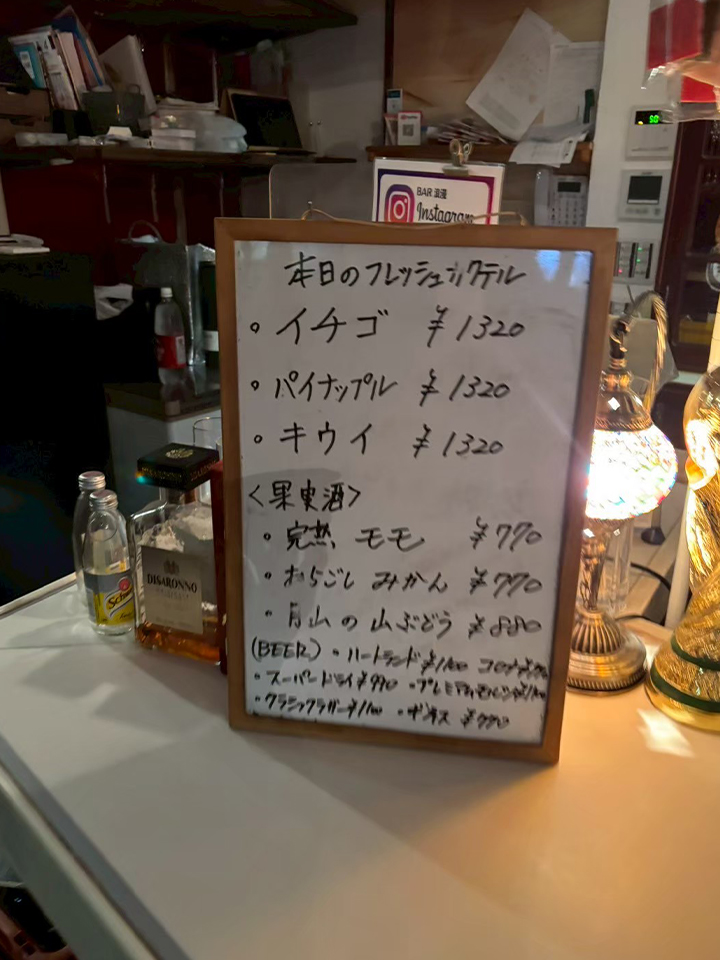 BAR 浪漫
Instagram
本日のフレッシュカクテル
・イチゴ ¥1320
・パイナップル ¥1320
・キウイ ¥1320
<果実酒>
・完熟 モモ ¥770
・あらごし みかん ¥770
・月山の山ぶどう ¥880
(BEER) ・ハートランド ¥1100 コロナ
・スーパードライ ¥990 ・プレミアムモルツ
・クラシックラガー ¥1100 ・ギネス ¥990
DISARONNO
50